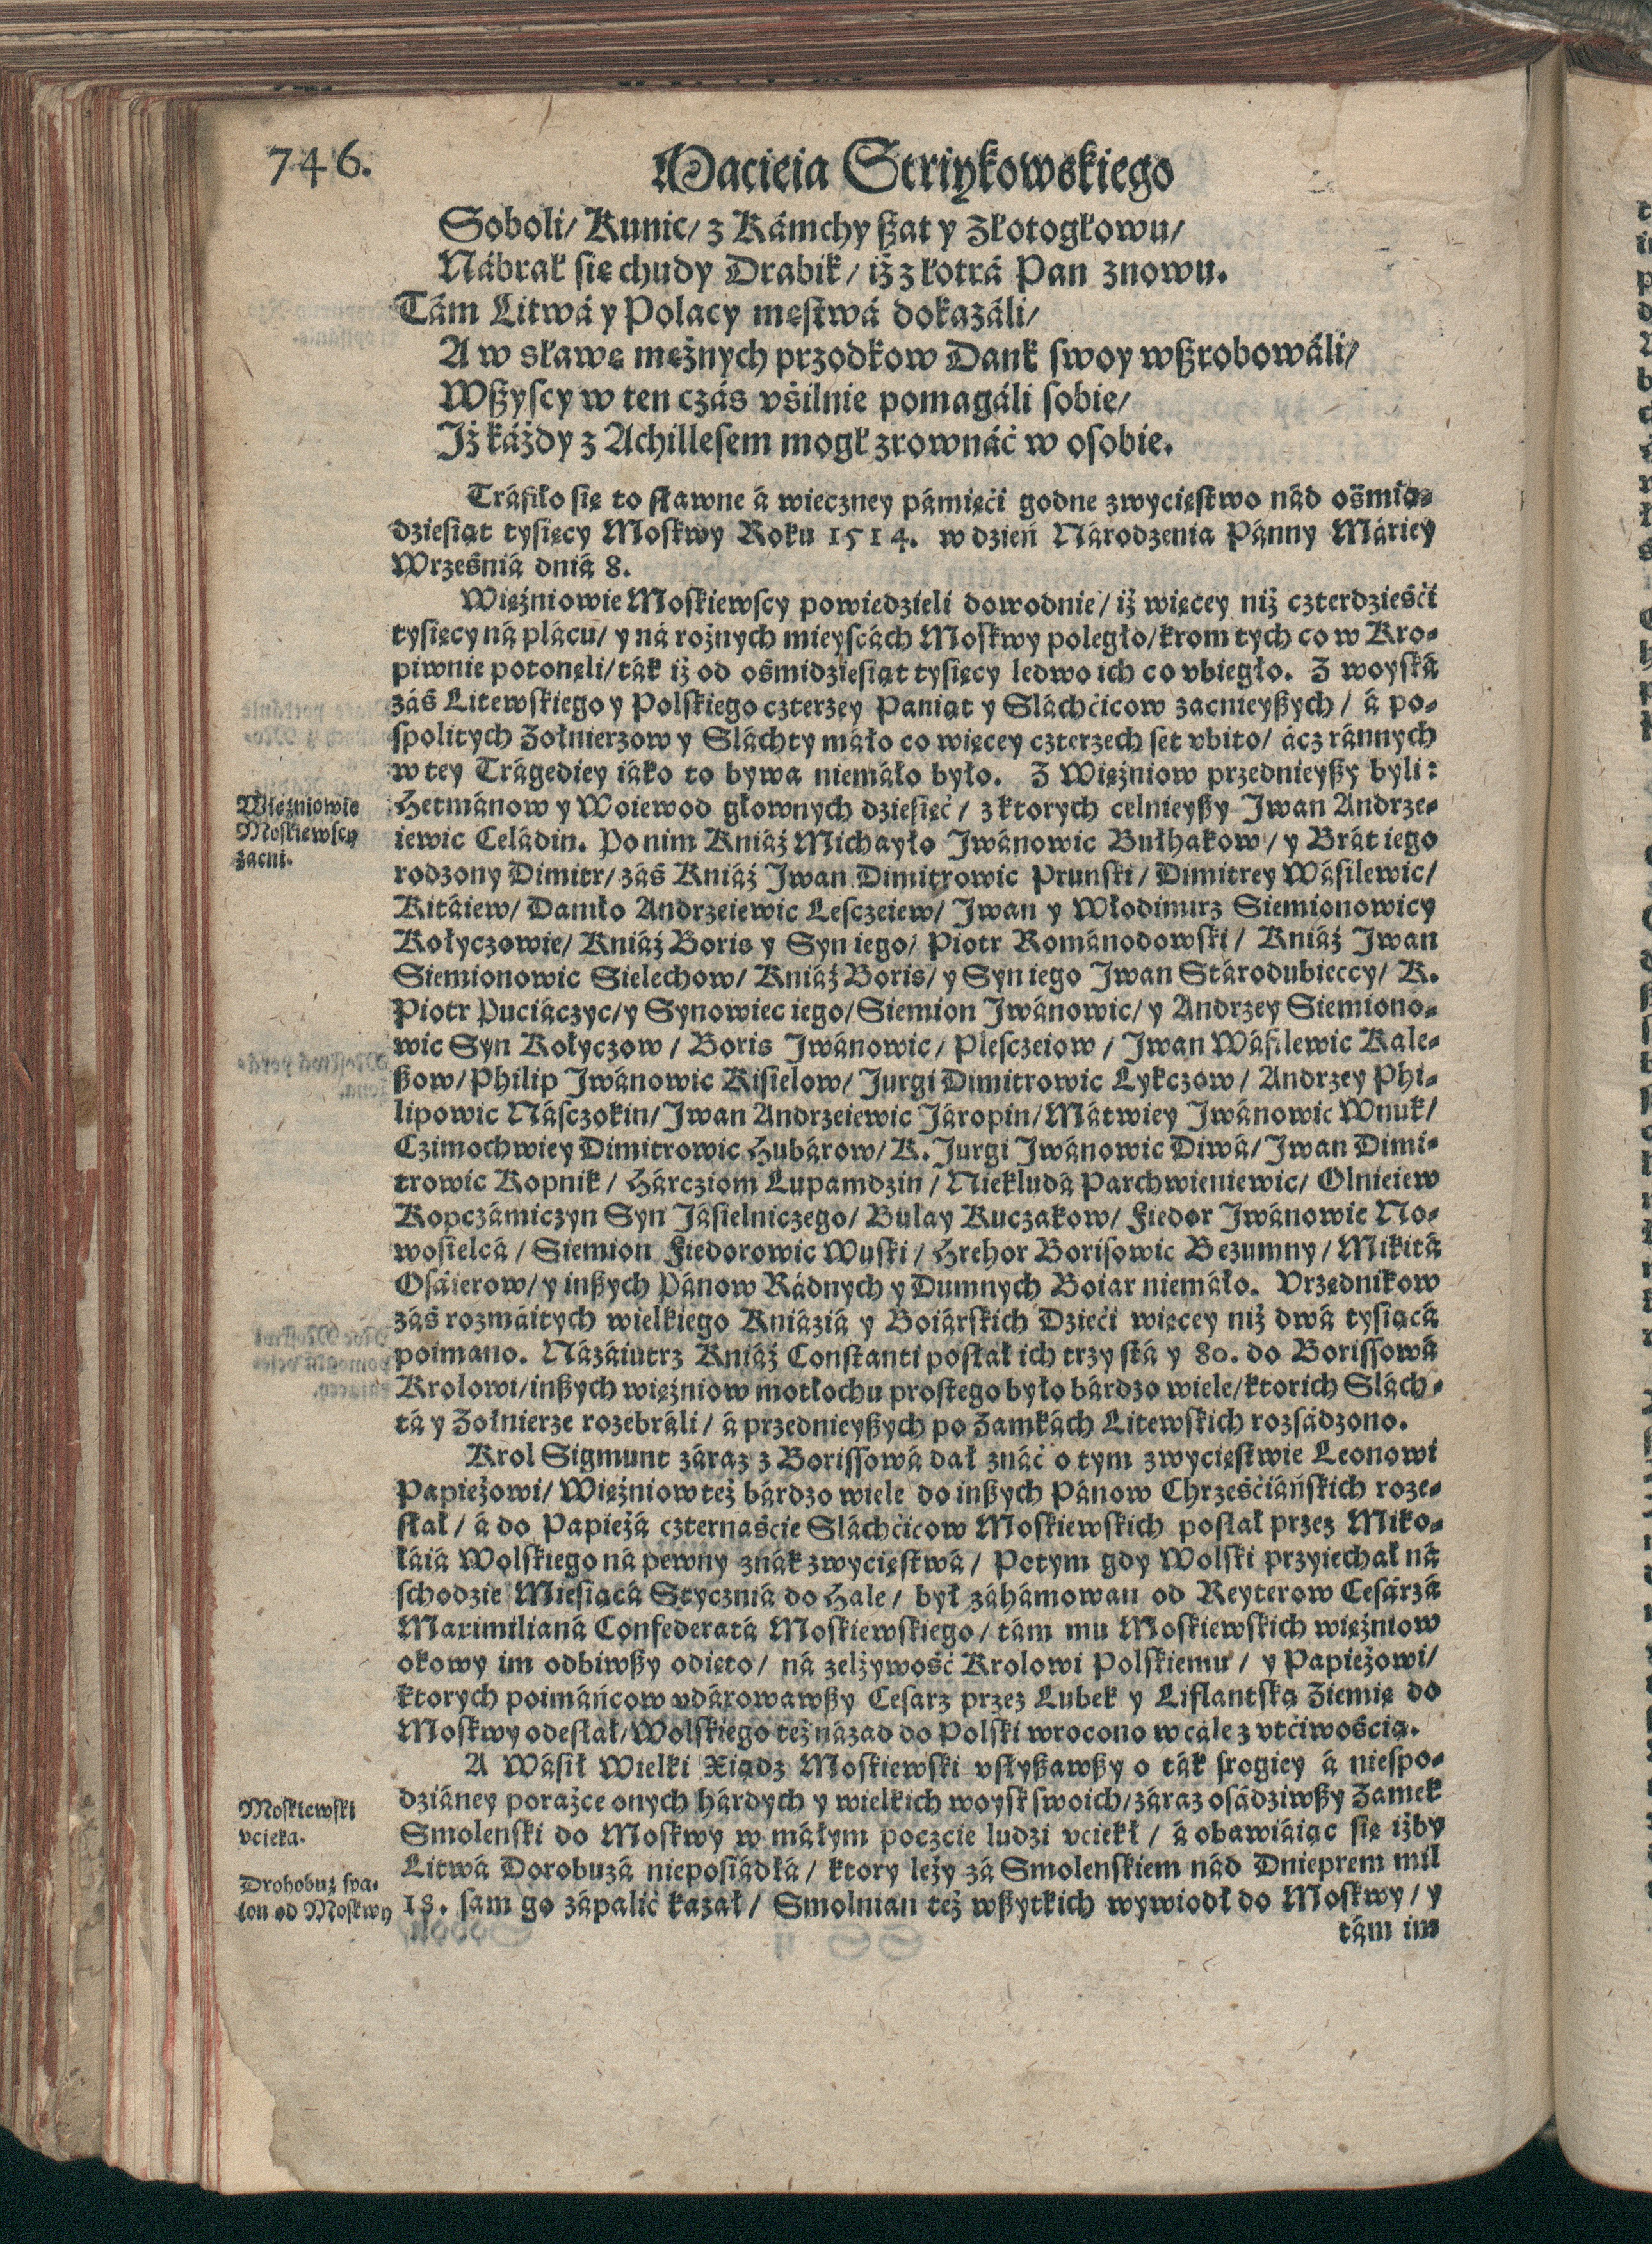 746.
Macieia Striykowskiego
Soboli/ Kunic/ z Kámchy ßat y Złotogłowu/
Nábrał się chudy Drabik/ iż z łotrá Pan znowu.
Tám Litwá y Polacy męstwá dokazáli/
A w sławę mężnych przodkow Dank swoy wßrobowáli/
Wßyscy w ten czás vśilnie pomagáli sobie/
Iż káżdy z Achillesem mogł zrownáć w osobie.
Tráfiło się to sławne á wieczney pámięći godne zwycięstwo nád ośmią-
dziesiąt tysięcy Moskwy Roku 1514. w dzień Národzenia Pánny Máriey
Wrześniá dniá 8.
Więźniowie Moskiewscy powiedzieli dowodnie/ iż więcey niż czterdzieśći
tysięcy ná plácu/ y ná rożnych mieyscách Moskwy poległo/ krom tych co w Kro-
piwnie potonęli/ ták iż od ośmidziesiąt tysięcy ledwo ich co vbiegło. Z woyská
záś Litewskiego y Polskiego czterzey Paniąt y Sláchćicow zacnieyßych/ á po-
spolitych Żołnierzow y Sláchty máło co więcey czterzech set vbito/ ácz ránnych
w tey Trágediey iáko to bywa niemáło było. Z Więźniow przednieyßy byli:
Hetmánow y Woiewod głownych dziesięć/ z ktorych celnieyßy Iwan Andrze-
iewic Celádin. Po nim Kniáź Michayło Iwánowic Bułhakow/ y Brát iego
rodzony Dimitr/ záś Kniáź Iwan Dimitrowic Prunski/ Dimitrey Wásilewic/
Kitáiew/ Daniło Andrzeiewic Lesczeiew/ Iwan y Włodimirz Siemionowicy
Kołyczowie/ Kniáź Boris y Syn iego/ Piotr Románodowski/ Kniáź Iwan
Siemionowic Sielechow/ Kniáź Boris/ y Syn iego Iwan Stárodubieccy/ K.
Piotr Puciáczyc/ y Synowiec iego/ Siemion Iwánowic/ y Andrzey Siemiono-
wic Syn Kołyczow/ Boris Iwánowic/ Plesczeiow/ Iwan Wásilewic Kale-
ßow/ Philip Iwánowic Kisielow/ Iurgi Dimitrowic Lykczow/ Andrzey Phi-
lipowic Násczokin/ Iwan Andrzeiewic Iáropin/ Mátwiey Iwánowic Wnuk/
Czimochwiey Dimitrowic Hubárow/ K. Iurgi Iwánowic Diwá/ Iwan Dimi-
trowic Kopnik/ Hárcziom Lupamdzin/ Niekludá Parchwieniewic/ Olnieiew
Kopczámiczyn Syn Iásielniczego/ Bulay Kuczakow/ Fiedor Iwánowic No-
wosielcá/ Siemion Fiedorowic Wuski/ Hrehor Borisowic Bezumny/ Mikitá
Osáierow/ y inßych Pánow Rádnych y Dumnych Boiar niemáło. Vrzędnikow
záś rozmáitych wielkiego Kniáziá y Boiárskich Dzieći więcey niż dwá tysiącá
poimano. Názáiutrz Kniáź Constanti posłał ich trzy stá y 80. do Borissowá
Krolowi/ inßych więźniow motłochu prostego było bárdzo wiele/ ktorich Slách-
tá y Żołnierze rozebráli/ á przednieyßych po Zamkách Litewskich rozsádzono.
Krol Sigmunt záraz z Borissowá dał znáć o tym zwycięstwie Leonowi
Papieżowi/ Więźniow też bárdzo wiele do inßych Pánow Chrześćiáńskich roze-
słał/ á do Papieżá czternaście Sláchćicow Moskiewskich posłał przez Miko-
łáiá Wolskiego ná pewny znák zwycięstwá/ Potym gdy Wolski przyiechał ná
schodzie Miesiącá Styczniá do Hale/ był záhámowan od Reyterow Cesárzá
Maximilianá Confederatá Moskiewskiego/ tám mu Moskiewskich więźniow
okowy im odbiwßy odięto/ ná zelżywość Krolowi Polskiemu/ y Papieżowi/
ktorych poimáńcow vdárowawßy Cesarz przez Lubek y Liflantską Ziemię do
Moskwy odesłał/ Wolskiego też názad do Polski wrocono w cále z vtćiwością.
A Wásił Wielki Xiądz Moskiewski vsłyßawßy o ták srogiey á niespo-
dziáney porażce onych hárdych y wielkich woysk swoich/ záraz osádziwßy Zamek
Smolenski do Moskwy w máłym poczcie ludzi vciekł/ á obawiáiąc się iżby
Litwá Dorobuzá nieposiádłá/ ktory leży zá Smolenskiem nád Dnieprem mil
18. sam go zápalić kazał/ Smolnian też wßytkich wywiodł do Moskwy/ y
tám im
Więźniowie
Moskiewscy
zacni.
Moskiewski
vcieka.
Drohobuż spa-
lon od Moskwy